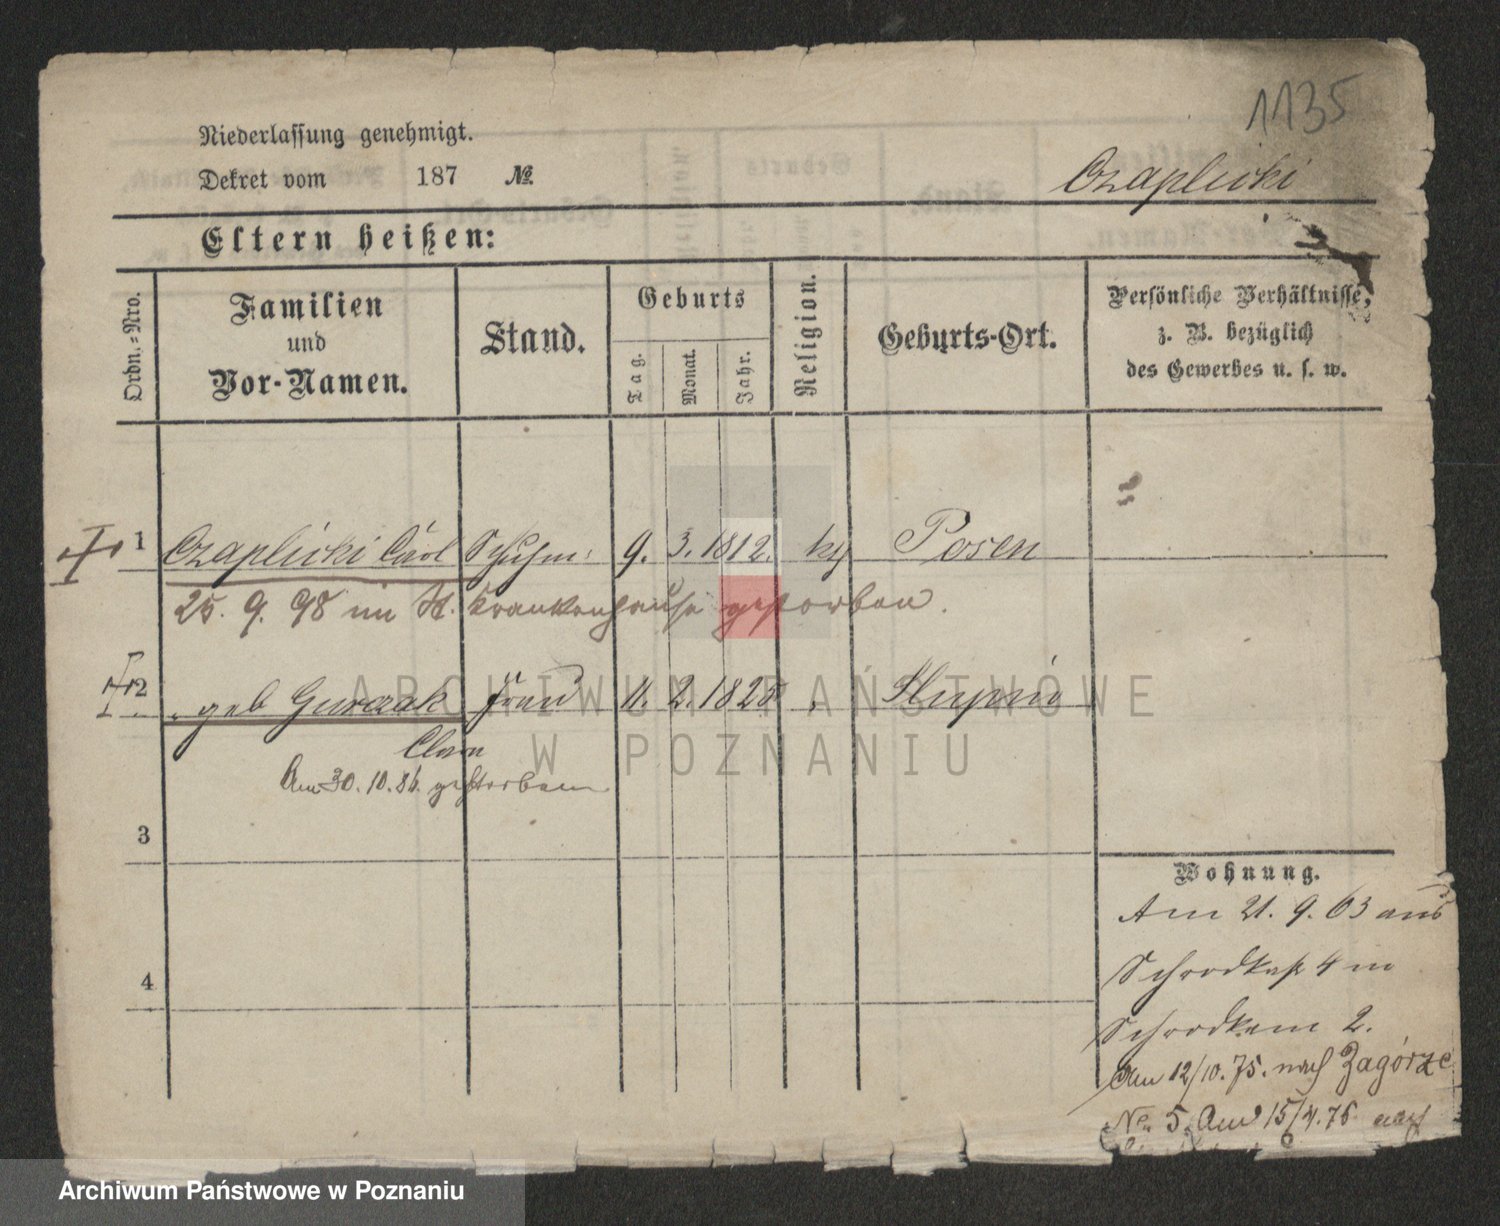 1135
Niederlassung genehmigt.
Dekret vom 187 №.
Czaplicki
Eltern heißen:
Ordn.=Nro.
Familien
und
Vor-Namen.
Stand.
Geburts
Tag.
Monat.
Jahr.
Religion.
Geburts-Ort.
Persönliche Verhältnisse,
z. B. bezüglich
des Gewerbes u. s. w.
1 Czaplicki Carl Schuhm: 9. 3. 1812. kg Posen
25. 9. 98 im St. Krankenhause gestorben.
2 geb Gurczak Frau 11. 2. 1825
Clara
Am 30. 10. 84. gestorben
3
4
Wohnung.
Am 21. 9. 63 aus
4 in
2.
Am 12/10. 75. nach Zagórze
No 5. Am 15/4. 76 nach
ARCHIWUM PAŃSTWOWE
W POZNANIU
Archiwum Państwowe w Poznaniu